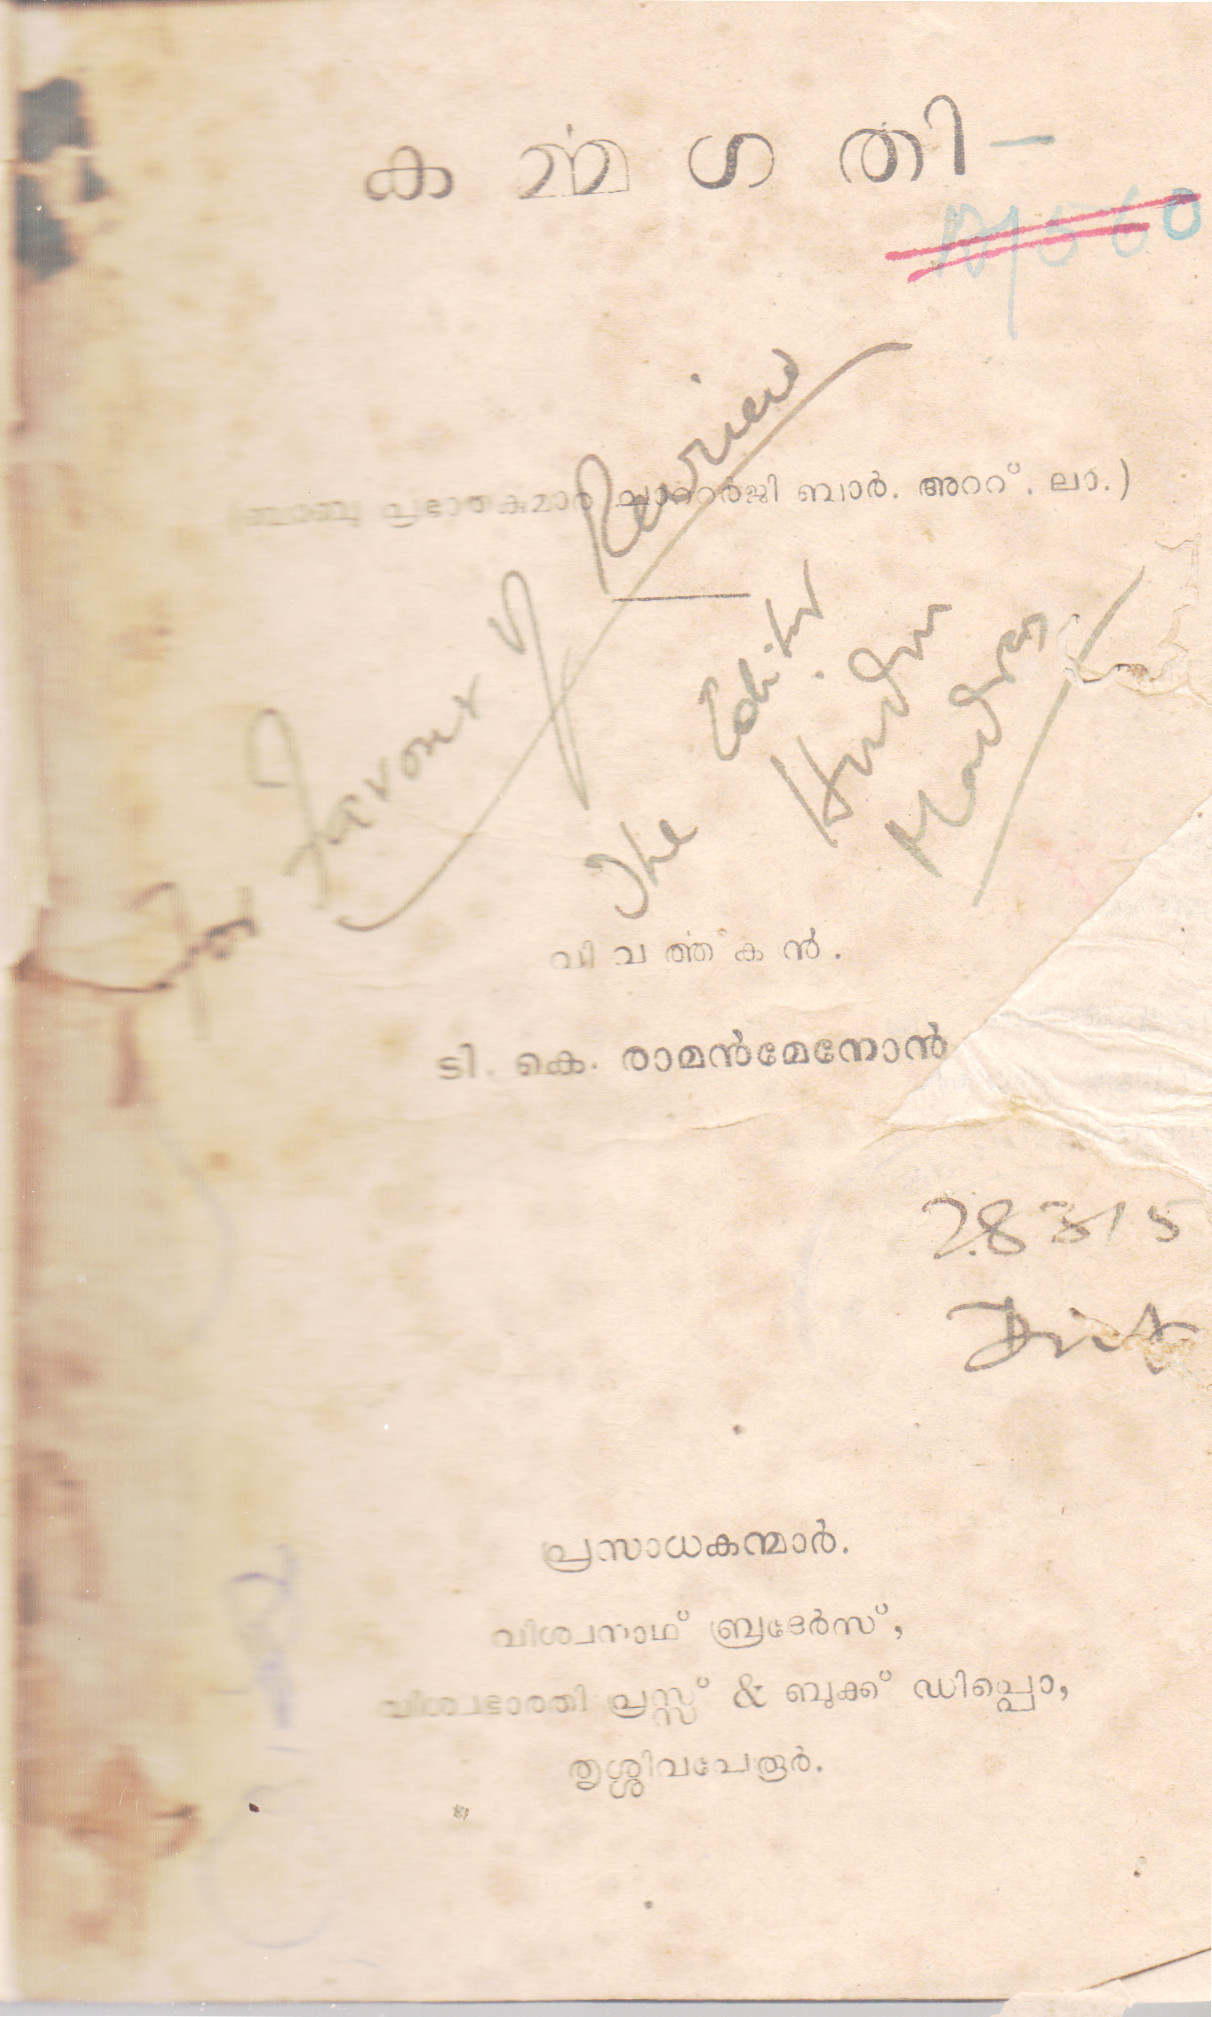 കൎമ്മഗതി
(ബാബു പ്രഭാതകുമാര ചാററർജി ബാർ. അററ്. ലാ.)
For Favour of Review
The Editor
Hindu
Madras
വിവൎത്തകൻ.
ടി. കെ. രാമൻമേനോൻ
28315
പ്രസാധകന്മാർ.
വിശ്വനാഥ് ബ്രദേർസ്,
വിശ്വഭാരതി പ്രസ്സ് & ബുക്ക് ഡിപ്പൊ,
തൃശ്ശിവപേരൂർ.